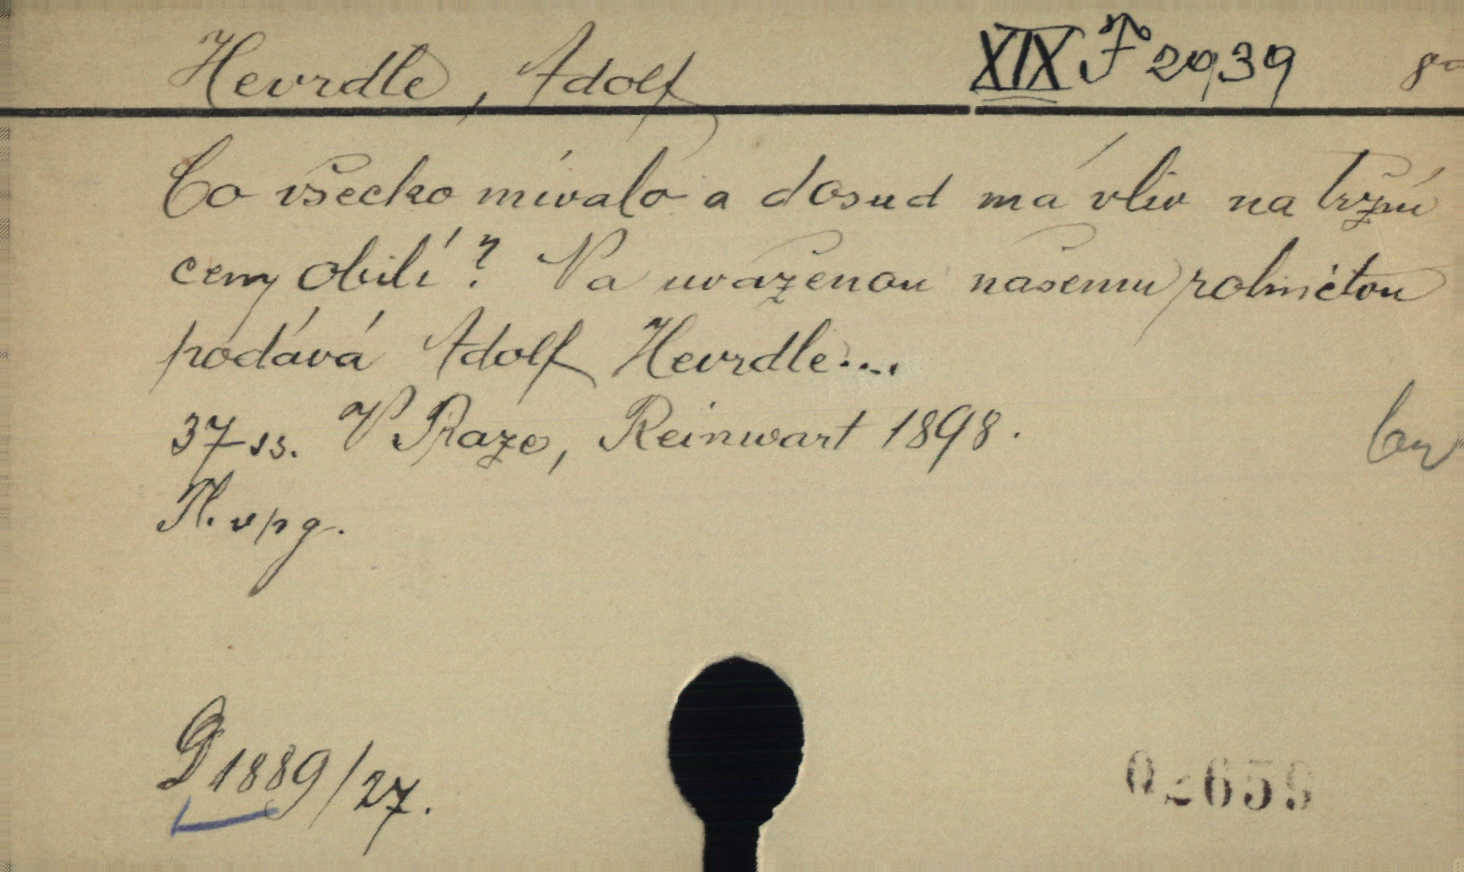 Hevrdle, Adolf XIX F 2939 8°
Co všecko mívalo a dosud má vliv na tržní
ceny obilí? Na uváženou našemu rolnictvu
podává Adolf Hevrdle...
37 ss. V Praze, Reinwart 1898.
Tl. vpg.
D 1889/27.
02659